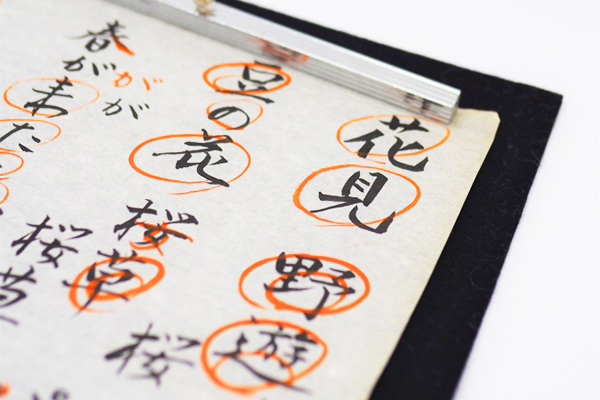 花見
野遊
豆の花
桜草
桜
春が
がが
来た
桜
草